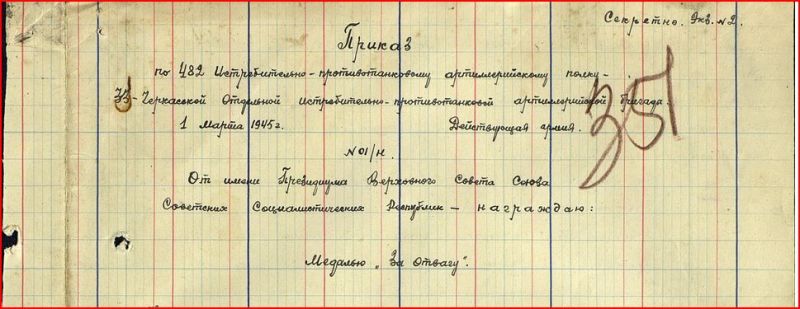 Секретно. Экз. N2.
Приказ
по 482 Истребительно-противотанковому артиллерийскому полку-
33-Черкасской Отдельной истребительно-противотанковой артиллерийской бригада.
1 Марта 1945г. Действующая армия.
351
N 01/н.
От имени Президиума Верховного Совета Союза
Советских Социалистических Республик - награждаю:
Медалью „За отвагу".